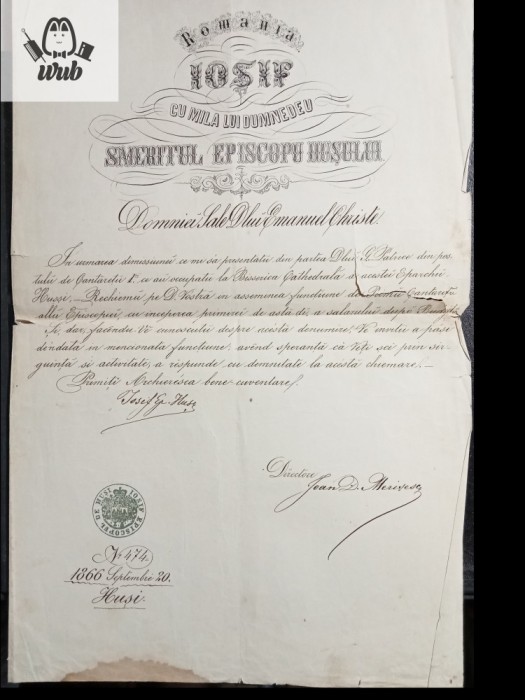 wub
Romania
IOSIF
CU MILA LUI DUMNEDEU
SMERITUL EPISCOPU HUȘULUI
Domniei Sale Dlui Emanuel Christe.
In urmarea demissiunei ce me să presentatŭ din partea Dlui G. Patrice din pos-
tulŭ de Cantaretŭ 1º, ce au ocupatŭ la Bisserica Cathedrală a acestei Eparchii
Hussi. — Rechiemŭ pe D. Vostră in assemenea functiune de Cantaretŭ
altŭ Episcopii, cu inceperea primirei de asta di a salariului despre
Se, dar, facêndu Vĕ cunoscutŭ despre acéstă denumire, Vĕ invitu a prise
dêndată in mentionata functiune, avênd sperantă că Veți sci prin ser-
guință si activitate, a rĕspunde cu demnitate la acéstă chiemare. —
Primiți Archieresca bine cuventare/.
Iosif Ep. Huși
Directore
Jean D.
IOSIF EPISCOPUL DE HUȘI
Nº 474.
1866 Septembr 20.
Huși.